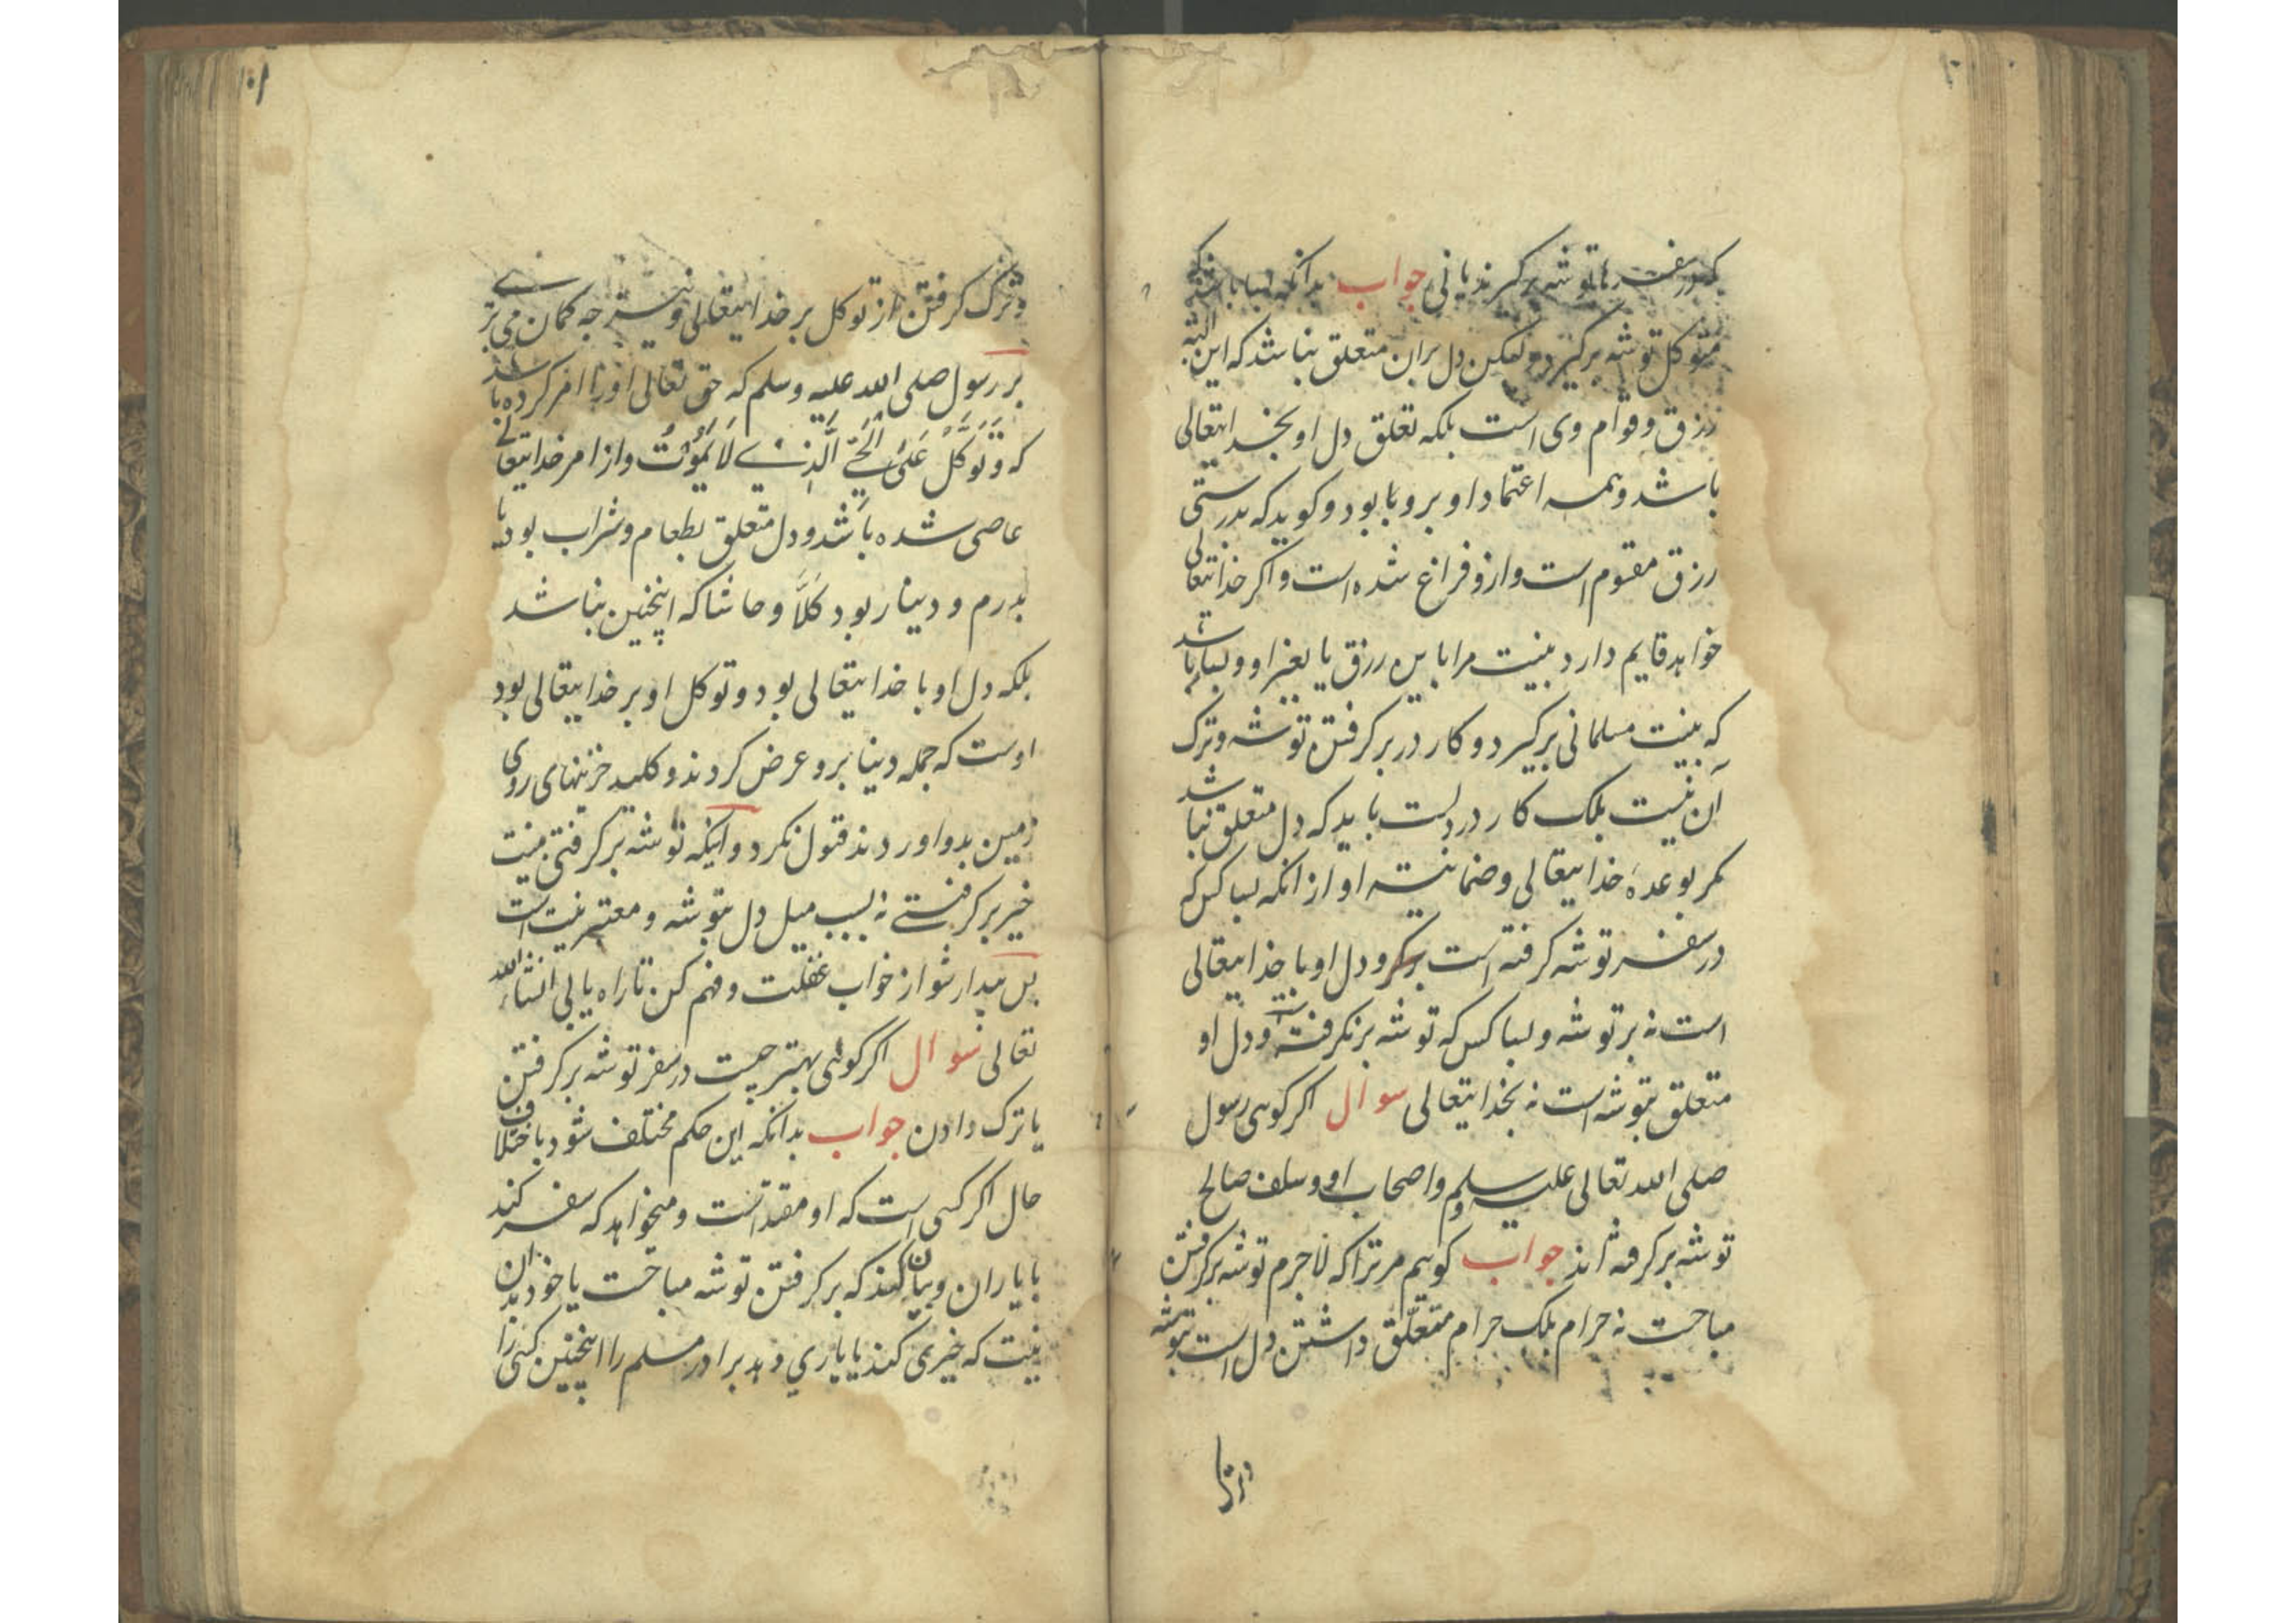 که در سفرها توشه برگیرند یا نی جواب بدانکه بسا باشد که
متوکل توشه برگیرد ولیکن دل بران متعلق نباشد که این البته
رزق و قوام وی است بلکه تعلق دل او بخدایتعالی
باشد و همه اعتماد او برو با بود و کوید که بدرستی
رزق مقسوم است و ازو فراغ شده است و اکر خدایتعالی
خواهد قایم دارد بنیت مرا باین رزق یا بغیر او و بسا باشد
که بنیت مسلمانی برگیرد و کار در برکرفتن توشه و ترک
آن نیست بلک کار در دلست باید که دل متعلق نباشد
مکر بوعدهٔ خدایتعالی و ضمانیت او از انکه بسا کس که
در سفر توشه کرفته است و دل او با خدایتعالی
است نه بر توشه و بسا کس که توشه برنکرفته و دل او
متعلق بتوشه است نه بخدایتعالی سوال اکر کوی رسول
صلی الله تعالی علیه وسلم و اصحاب او و سلف صالح
توشه برکرفته اند جواب کویم مر ترا که لاجرم توشه برکرفتن
مباحست نه حرام بلک حرام متعلق داشتن دل است بتوشه
و ترک کرفتن از توکل بر خدایتعالی و نیز چه کمان می بری
بر رسول صلی الله علیه وسلم که حق تعالی او را امر کرده باشد
که وَتَوَکَّلْ عَلَی الْحَیِّ الَّذِی لَا یَمُوتُ و از امر خدایتعالی
عاصی شده باشد و دل متعلق بطعام و شراب بود یا
بدرم و دینار بود کلّا و حاشا که اینچنین نباشد
بلکه دل او با خدایتعالی بود و توکل او بر خدایتعالی بود
اوست که جمله دنیا برو عرض کردند و کلید خزینهای روی
زمین بدو اوردند قبول نکرد و آنکه توشه برکرفتی بنیت
خیر برکرفتی نه بسبب میل دل بتوشه و معتبر نیت است
پس بیدار شو از خواب غفلت و فهم کن تا راه یابی انشاء الله
تعالی سوال اکر کوئی بهتر چیست در سفر توشه برکرفتن
یا ترک دادن جواب بدانکه این حکم مختلف شود باختلاف
حال اکر کسی است که او مقتداست و میخواهد که سفر کند
با یاران و بیان کند که برکرفتن توشه مباحست یا خود بدان
نیت که خیری کند یا یاری دهد برادر مسلم را اینچنین کس را